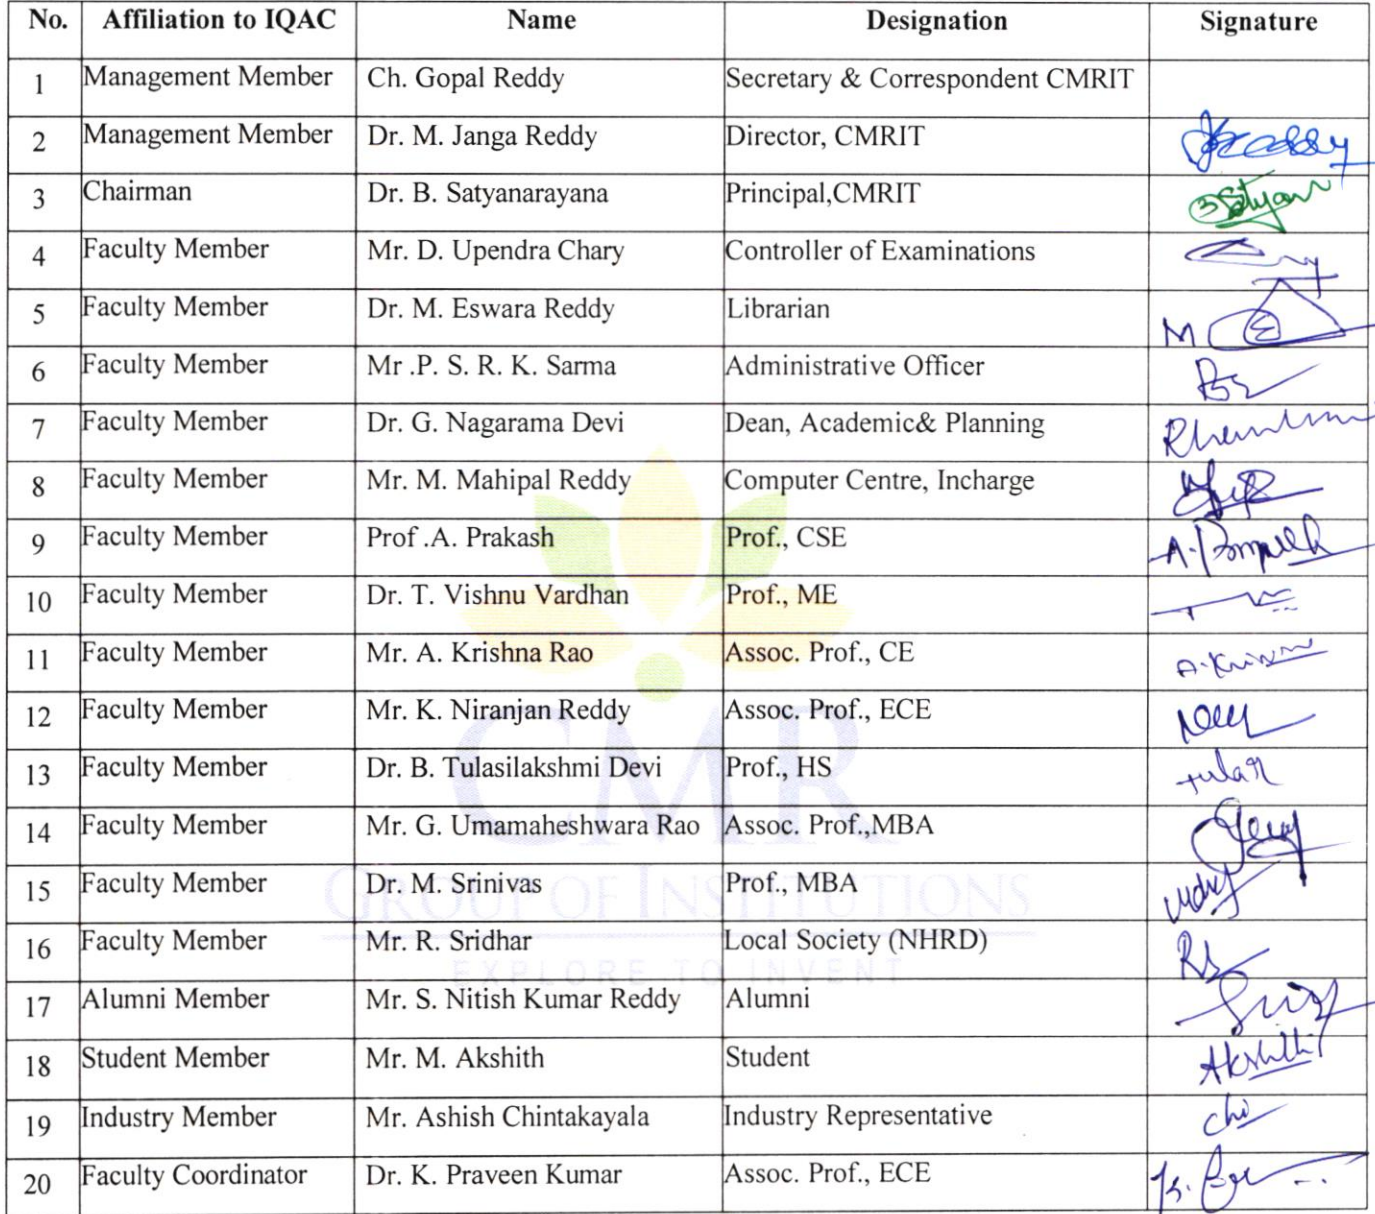 No. Affiliation to IQAC Name Designation Signature
1 Management Member Ch. Gopal Reddy Secretary & Correspondent CMRIT
2 Management Member Dr. M. Janga Reddy Director, CMRIT
3 Chairman Dr. B. Satyanarayana Principal,CMRIT
4 Faculty Member Mr. D. Upendra Chary Controller of Examinations
5 Faculty Member Dr. M. Eswara Reddy Librarian
6 Faculty Member Mr .P. S. R. K. Sarma Administrative Officer
7 Faculty Member Dr. G. Nagarama Devi Dean, Academic& Planning
8 Faculty Member Mr. M. Mahipal Reddy Computer Centre, Incharge
9 Faculty Member Prof .A. Prakash Prof., CSE
10 Faculty Member Dr. T. Vishnu Vardhan Prof., ME
11 Faculty Member Mr. A. Krishna Rao Assoc. Prof., CE
12 Faculty Member Mr. K. Niranjan Reddy Assoc. Prof., ECE
CMR
13 Faculty Member Dr. B. Tulasilakshmi Devi Prof., HS
14 Faculty Member Mr. G. Umamaheshwara Rao Assoc. Prof.,MBA
15 Faculty Member Dr. M. Srinivas Prof., MBA
GROUP OF INSTITUTIONS
16 Faculty Member Mr. R. Sridhar Local Society (NHRD)
EXPLORE TO INVENT
17 Alumni Member Mr. S. Nitish Kumar Reddy Alumni
18 Student Member Mr. M. Akshith Student Akshith
19 Industry Member Mr. Ashish Chintakayala Industry Representative
20 Faculty Coordinator Dr. K. Praveen Kumar Assoc. Prof., ECE